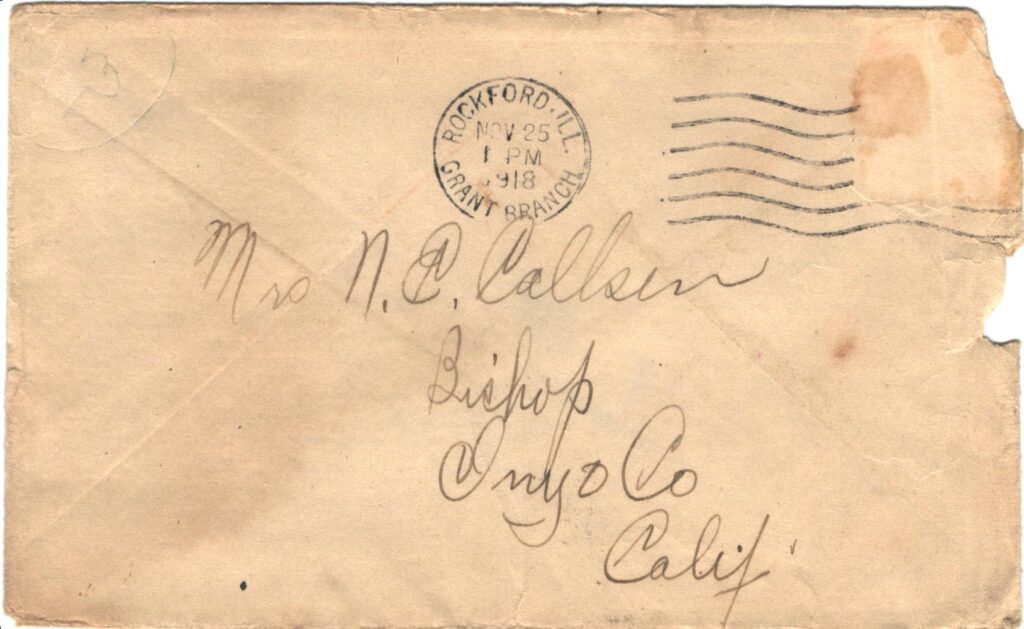 3
ROCKFORD, ILL.
NOV 25
1 PM
1918
GRANT BRANCH
Mrs N. C. Callsen
Bishop
Inyo Co
Calif